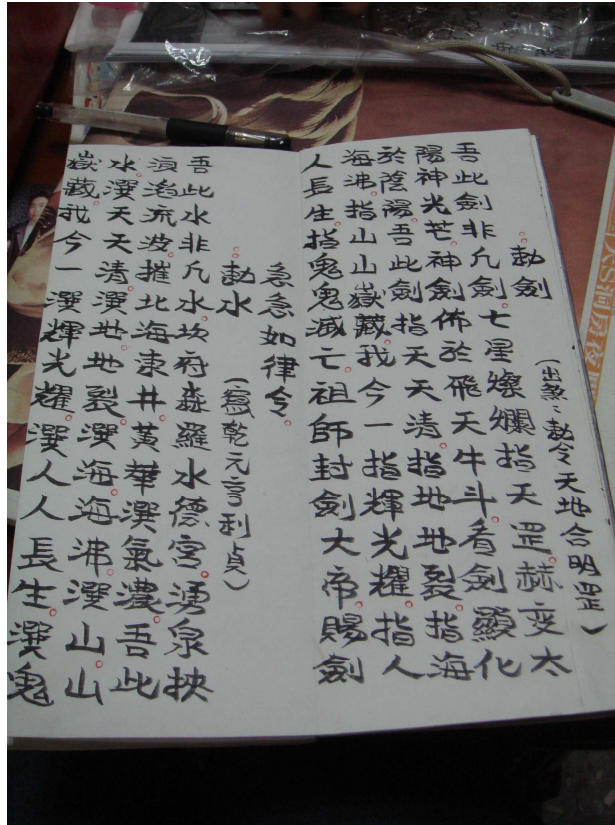 勅劍
(出煞:勅令天地合明罡)
吾此劍非凡劍。七星燦爛指天罡。赫变太
陽神光芒。神劍佈於飛天牛斗。看劍顯化
於陰陽。吾此劍指天天清。指地地裂。指海
海沸。指山山嶽藏。我今一指輝光耀。指人
人長生。指鬼鬼滅亡。祖師封劍大帝賜劍
急急如律令。
勅水
(乾元亨利貞)
吾此水非凡水。坎府森羅水德宮。湧泉
流波。摧北海。東井黃華潠氣濃。吾此
水。潠天天清。潠地地裂。潠海海沸。潠山山
嶽藏。我今一潠輝光耀。潠人人長生。潠鬼